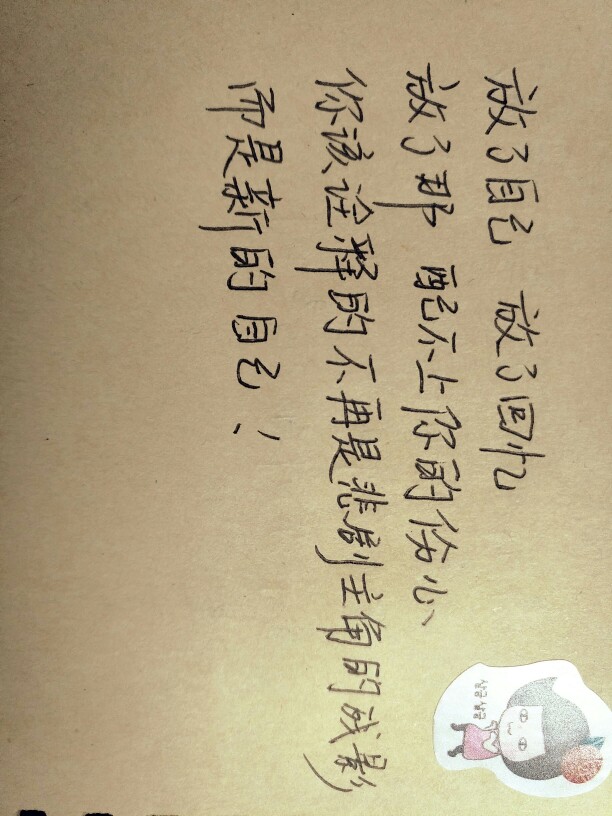 放了自己 放了回忆
放了那 配不上你的伤心
你该诠释的不再是悲剧主角的残影
而是新的自己！